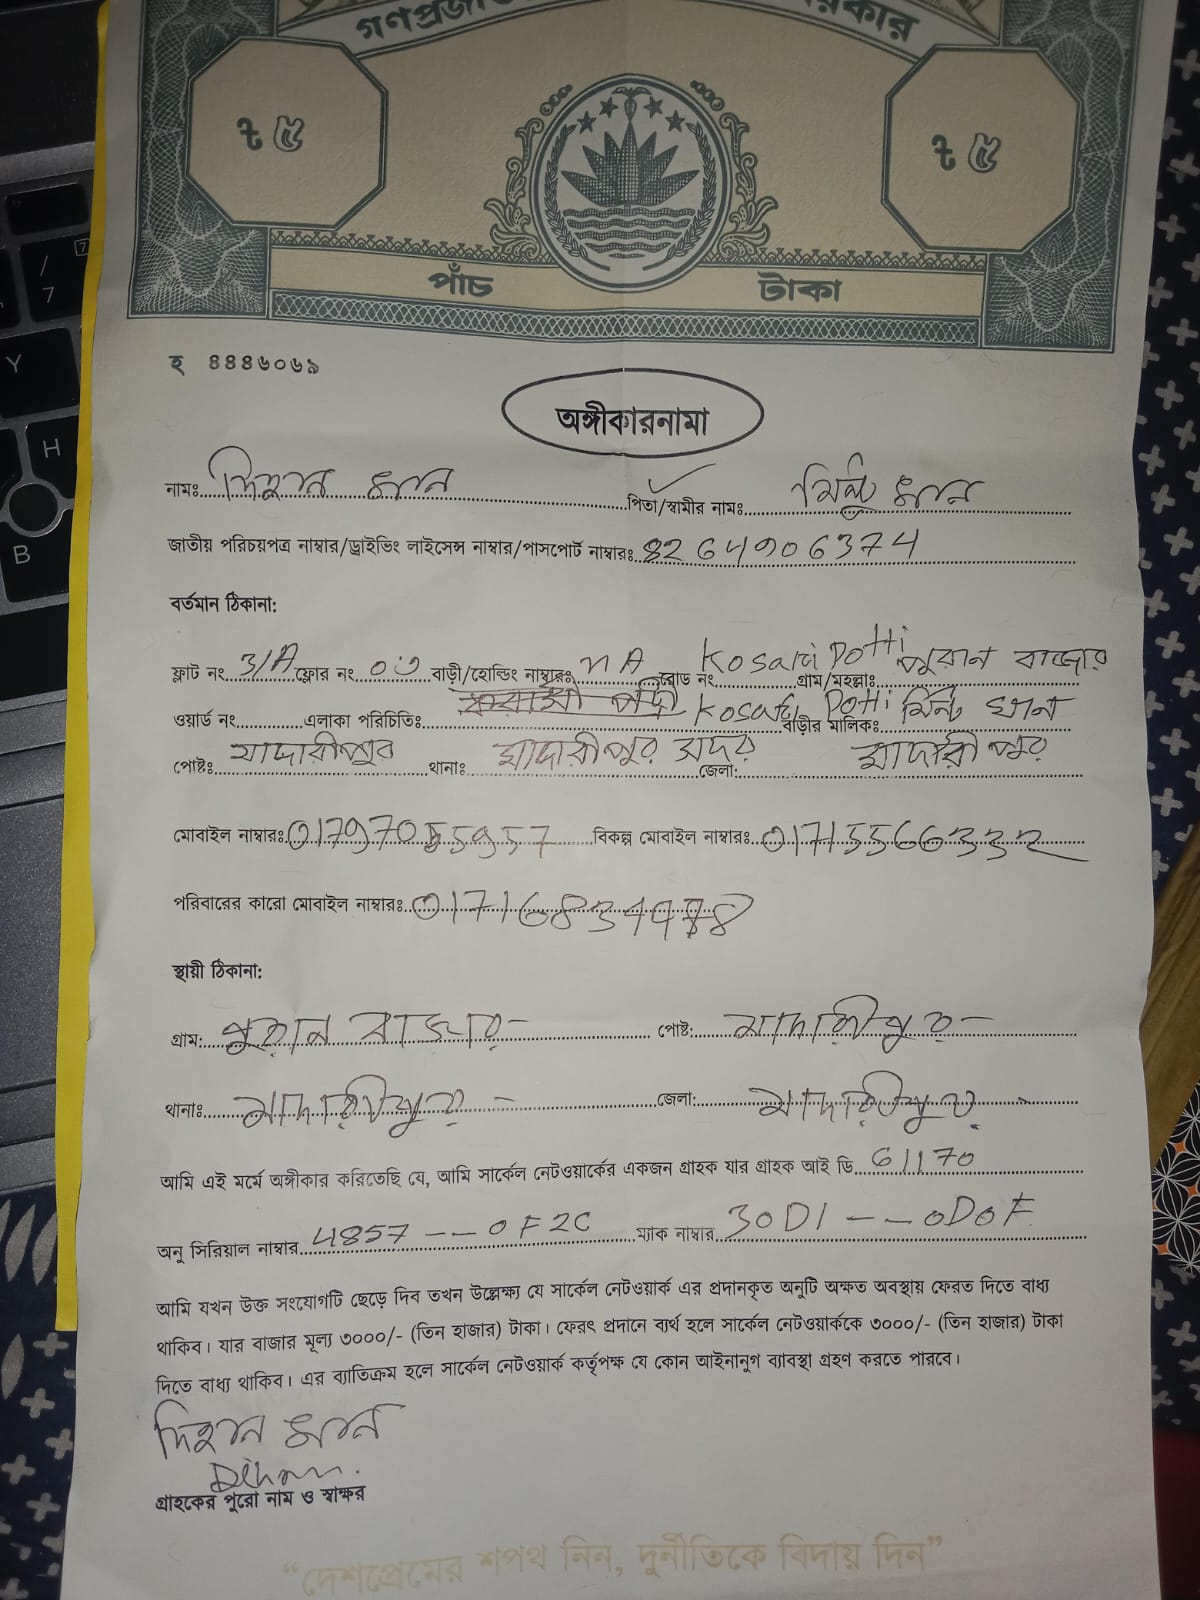 ৳ ৫
৳ ৫
পাঁচ টাকা
হ ৪৪৪৬০৬৯
অঙ্গীকারনামা
নামঃ দিহান খান পিতা/স্বামীর নামঃ মিন্টু খান
জাতীয় পরিচয়পত্র নাম্বার/ড্রাইভিং লাইসেন্স নাম্বার/পাসপোর্ট নাম্বারঃ 8264906374
বর্তমান ঠিকানা:
ফ্লাট নং 3/A ফ্লোর নং ০৩ বাড়ী/হোল্ডিং নাম্বারঃ NA রোড নং Kosari Potti গ্রাম/মহল্লাঃ পুরান বাজার
ওয়ার্ড নং এলাকা পরিচিতিঃ Kosari Potti বাড়ীর মালিকঃ মিন্টু খান
পোষ্টঃ মাদারীপুর থানাঃ মাদারীপুর সদর জেলা: মাদারীপুর
মোবাইল নাম্বারঃ বিকল্প মোবাইল নাম্বারঃ 01715566332
পরিবারের কারো মোবাইল নাম্বারঃ
স্থায়ী ঠিকানা:
গ্রাম: পুরান বাজার পোষ্ট: মাদারিপুর
থানাঃ মাদারিপুর জেলা: মাদারিপুর
আমি এই মর্মে অঙ্গীকার করিতেছি যে, আমি সার্কেল নেটওয়ার্কের একজন গ্রাহক যার গ্রাহক আই ডি 61170
অনু সিরিয়াল নাম্বার 4857 -- 0F2C ম্যাক নাম্বার 30D1 -- 0D0F
আমি যখন উক্ত সংযোগটি ছেড়ে দিব তখন উল্লেক্ষ্য যে সার্কেল নেটওয়ার্ক এর প্রদানকৃত অনুটি অক্ষত অবস্থায় ফেরত দিতে বাধ্য
থাকিব। যার বাজার মূল্য ৩০০০/- (তিন হাজার) টাকা। ফেরৎ প্রদানে ব্যর্থ হলে সার্কেল নেটওয়ার্ককে ৩০০০/- (তিন হাজার) টাকা
দিতে বাধ্য থাকিব। এর ব্যাতিক্রম হলে সার্কেল নেটওয়ার্ক কর্তৃপক্ষ যে কোন আইনানুগ ব্যাবস্থা গ্রহণ করতে পারবে।
দিহান খান
Dihan.
গ্রাহকের পুরো নাম ও স্বাক্ষর
“দেশপ্রেমের শপথ নিন, দুর্নীতিকে বিদায় দিন”